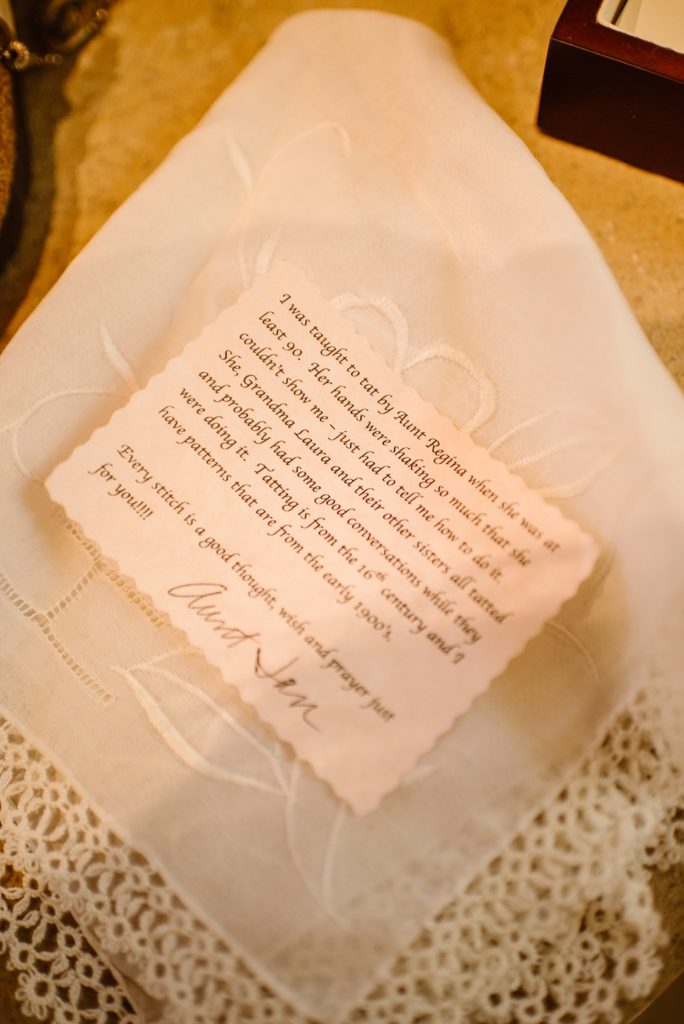 I was taught to tat by Aunt Regina when she was at
least 90. Her hands were shaking so much that she
couldn't show me – just had to tell me how to do it.
She, Grandma Laura and their other sisters all tatted
and probably had some good conversations while they
were doing it. Tatting is from the 16th century and I
have patterns that are from the early 1900's.
Every stitch is a good thought, wish and prayer just
for you!!!!
Aunt Jen